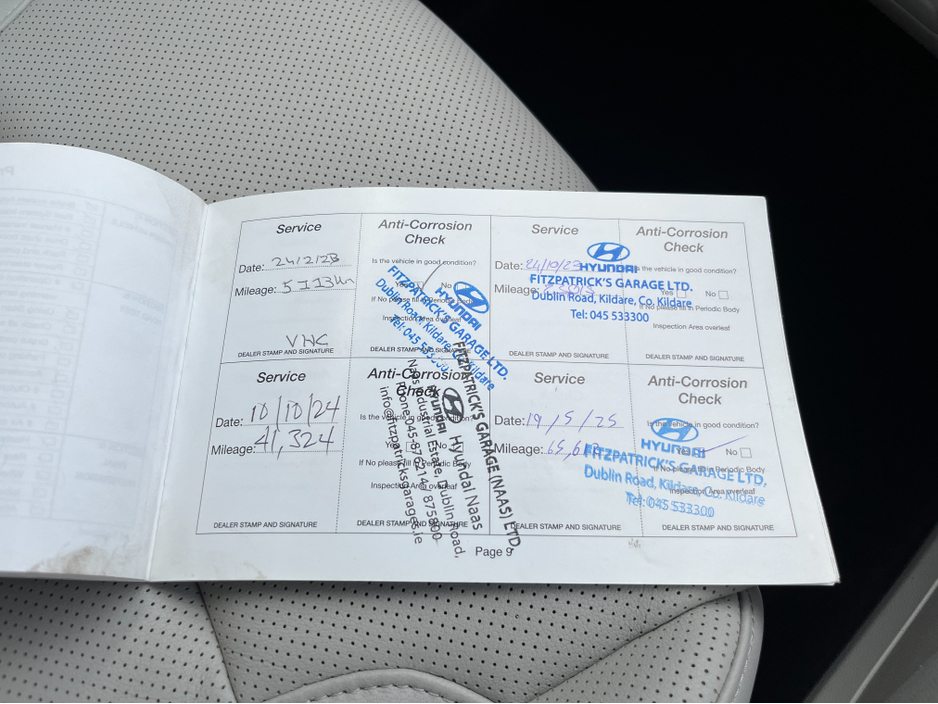 Service
Date: 24/2/23
Mileage:
VHC
DEALER STAMP AND SIGNATURE
Anti-Corrosion
Check
Is the vehicle in good condition?
No
If No please fill in Periodic Body
Inspection Area overleaf
DEALER STAMP AND SIGNATURE
HYUNDAI
FITZPATRICK'S GARAGE LTD.
Dublin Road, Kildare, Co. Kildare
Tel: 045 533300
Service
Date: 24/10/23
Mileage:
DEALER STAMP AND SIGNATURE
Anti-Corrosion
Check
Is the vehicle in good condition?
Yes No
If No please fill in Periodic Body
Inspection Area overleaf
HYUNDAI
FITZPATRICK'S GARAGE LTD.
Dublin Road, Kildare, Co. Kildare
Tel: 045 533300
Service
Date: 10/10/24
Mileage: 41,324
DEALER STAMP AND SIGNATURE
Anti-Corrosion
Check
Is the vehicle in good condition?
Yes No
If No please fill in Periodic Body
Inspection Area overleaf
DEALER STAMP AND SIGNATURE
FITZPATRICK'S GARAGE (NAAS) LTD.
HYUNDAI Hyundai Naas
Naas Industrial Estate, Dublin Road,
Phone: 045-876214 / 875800
info@fitzpatricksgarages.ie
Service
Date: 19/5/25
Mileage:
DEALER STAMP AND SIGNATURE
Anti-Corrosion
Check
Is the vehicle in good condition?
Yes No
If No please fill in Periodic Body
Inspection Area overleaf
DEALER STAMP AND SIGNATURE
HYUNDAI
FITZPATRICK'S GARAGE LTD.
Dublin Road, Kildare, Co. Kildare
Tel: 045 533300
Page 9